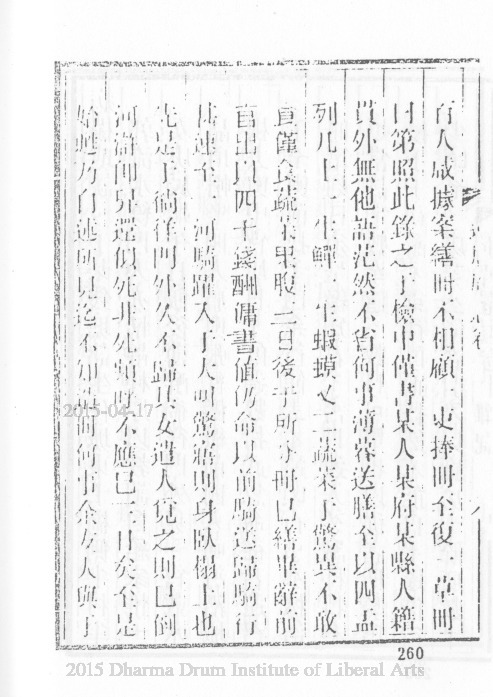 百人咸據案繕冊不相顧一吏捧冊至復一草冊
曰第照此錄之于檢中僅書某人某府某縣人籍
貫外無他語茫然不省何事薄暮送膳至以四盂
列几上一生鱓一生蝦蟆又二蔬菜于驚異不敢
食僅食蔬菜果腹三日後于所分冊已繕畢辭前
官出以四千錢酬傭書值仍命以前騎送歸騎行
甚速至一河騎躍入于大叫驚寤則身臥榻上也
先是于徜徉門外久不歸其女遣人覓之則已倒
河滸卽舁還似死非死頻呼不應已三日矣至是
始甦乃自述所見迄不知何事余友人與于
260
2015-04-17
2015 Dharma Drum Institute of Liberal Arts